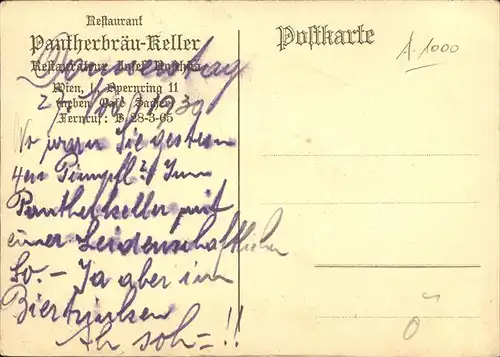 Restaurant
Pantherbräu-Keller
Restaurateur Josef
Wien, I., Opernring 11
(neben Café
Fernruf: B 28-3-65
Postkarte
A-1000
Donnerstag
1939
Sie gestern
4en 24 Juni
Pantherkeller mit
einer Leidenschaftlichen
So.- Ja aber im
Ah soh - !!